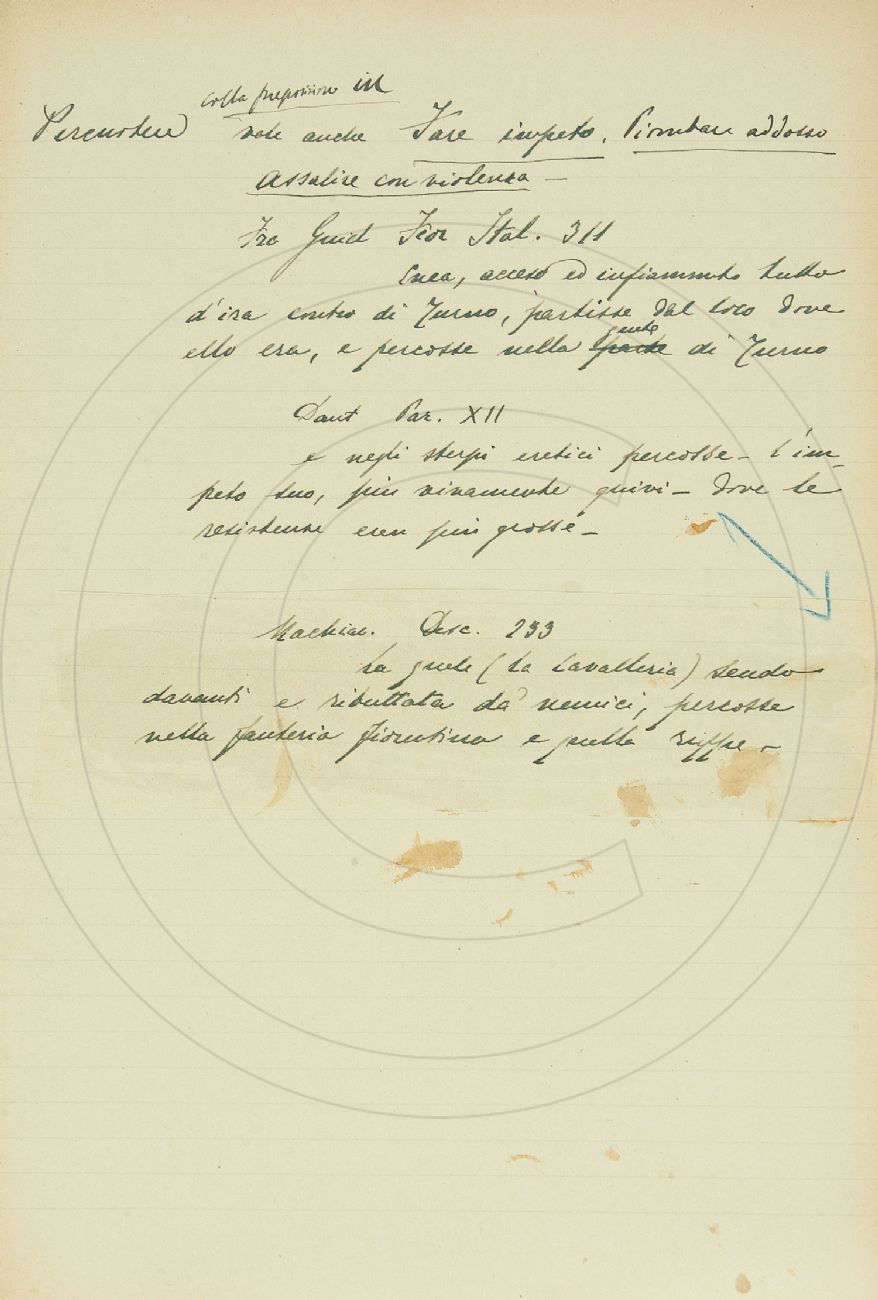 colla preposizione in
Percuotere vale anche Fare impeto, Piombare addosso
Assalire con violenza –
Fra Guid Fior Ital. 311
Enea, acceso ed infiammato tutto
d'ira contro di Turno, partisse dal loco dove
ello era, e percosse nella parte gente di Turno
Dant Par. XII
e negli sterpi eretici percosse – l'im-
peto suo, più vivamente quivi – dove le
resistenze eran più grosse –
Machiav. Disc. 233
La quale (la Cavalleria) sendo
davanti e ributtata da' nemici, percosse
nella fanteria fiorentina e quella ruppe –